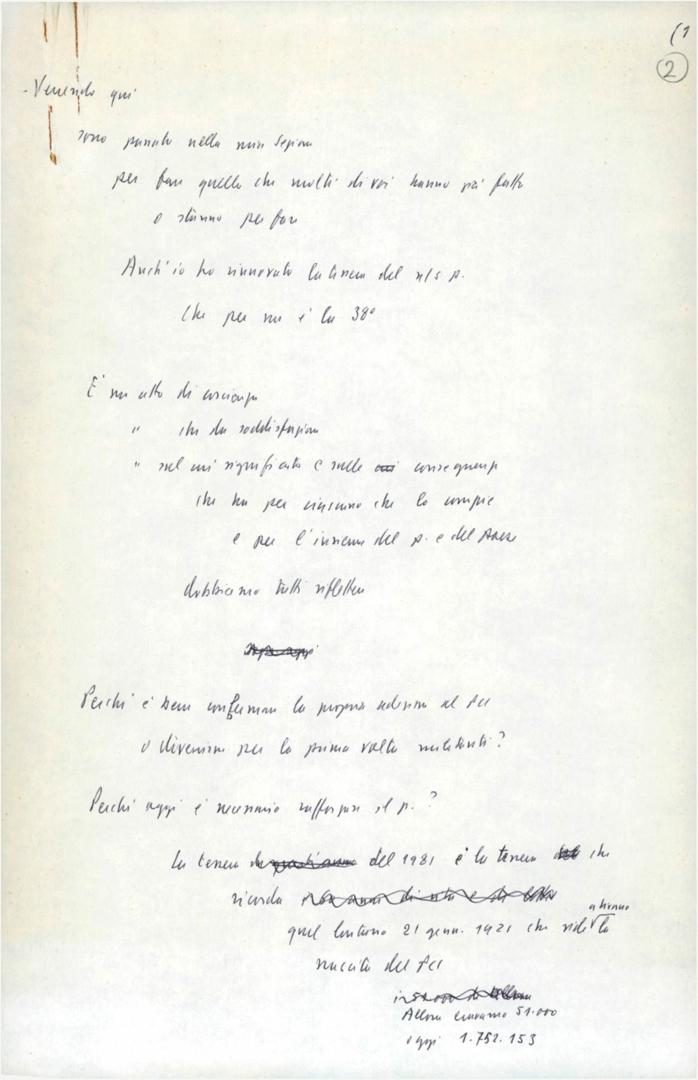 (1
2
- Venendo qui
sono passato nella mia sezione
per fare quello che molti di voi hanno già fatto
o stanno per fare
Anch'io ho rinnovato la tessera del n/s p.
che per me è la 38°
E' un atto di coscienza
" che da soddisfazione
" sul cui significato e sulle conseguenze
che ha per ciascuno che lo compie
e per l'insieme del p. e del Paese
dobbiamo tutti riflettere
Perché è bene confermare la propria adesione al PCI
o divenirne per la prima volta militanti?
Perché oggi è necessario rafforzare il p.?
La tessera del 1981 è la tessera che
ricorda
a Livorno
quel lontano 21 genn. 1921 che vide la
nascita del PCI
Allora eravamo 51.000
oggi 1.752.153